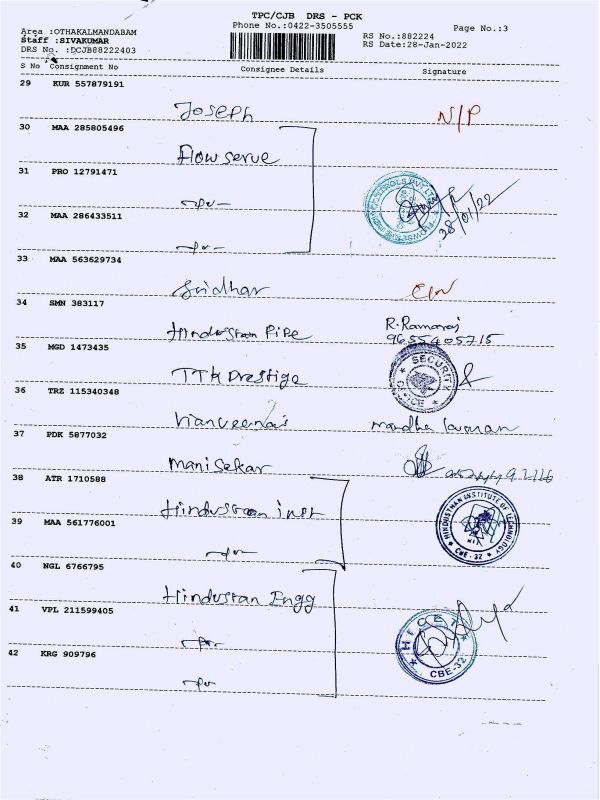 TPC/CJB DRS - PCK
Phone No.:0422-3505555
Page No.:3
Area :OTHAKALMANDABAM
Staff :SIVAKUMAR
DRS No. :DCJB88222403
RS No.:882224
RS Date:28-Jan-2022
S No Consignment No Consignee Details Signature
29 KUR 557879191
Joseph N/P
30 MAA 285805496
Flowserve
31 PRO 12791471
-do-
32 MAA 286433511
28/01/22
-do-
33 MAA 563629734
Sridhar
34 SMN 383117
Hindustan Pipe R. Ramaraj
9655405715
35 MGD 1473435
TTK Prestige
SECURITY
36 TRZ 115340348
37 PDK 5877032
Manisekar
38 ATR 1710588
Hindustan inst
HINDUSTHAN INSTITUTE OF TECHNOLOGY
CBE-32
39 MAA 561776001
-do-
40 NGL 6766795
Hindustan Engg
41 VPL 211599405
-do-
HICET
CBE-32
42 KRG 909796
-do-